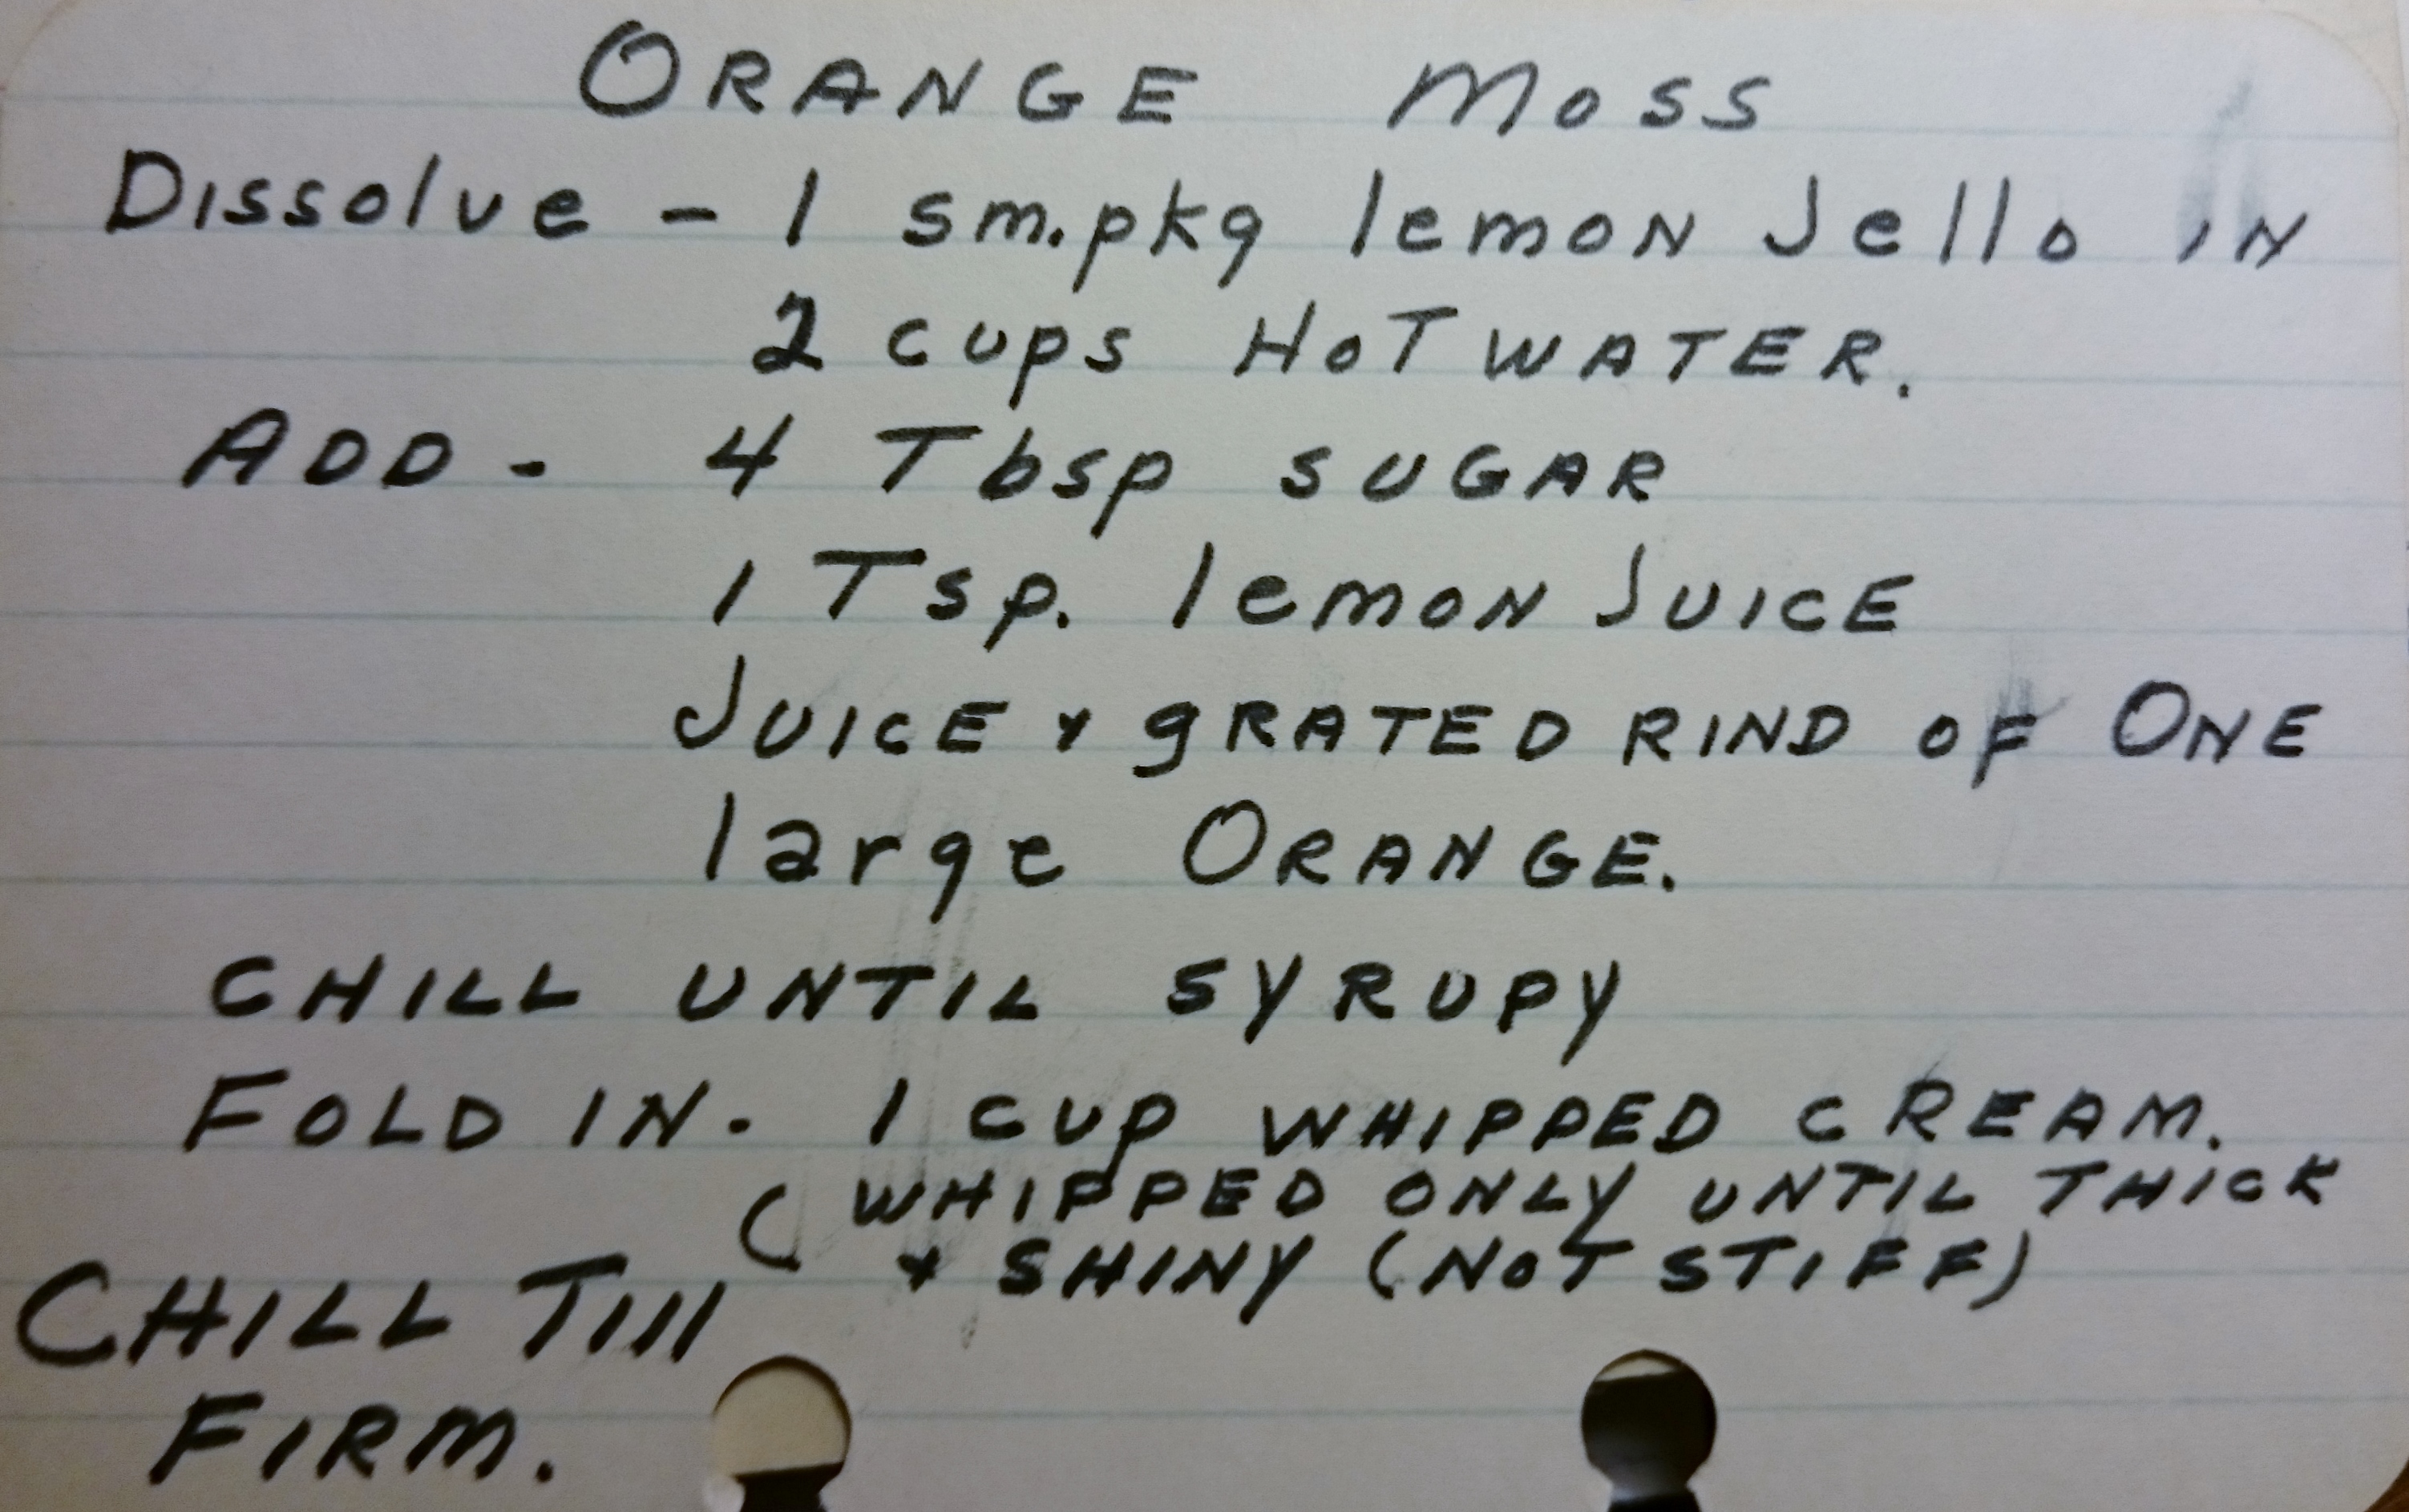 ORANGE MOSS
Dissolve - 1 sm. pkg lemon Jello IN
2 cups HOT WATER.
ADD - 4 Tbsp SUGAR
1 Tsp. lemon JUICE
JUICE & gRATED RIND OF ONE
large ORANGE.
CHILL UNTIL SYRUPY
FOLD IN. 1 CUP WHIPPED CREAM.
( WHIPPED ONLY UNTIL THICK
& SHINY (NOT STIFF)
CHILL Till
FIRM.